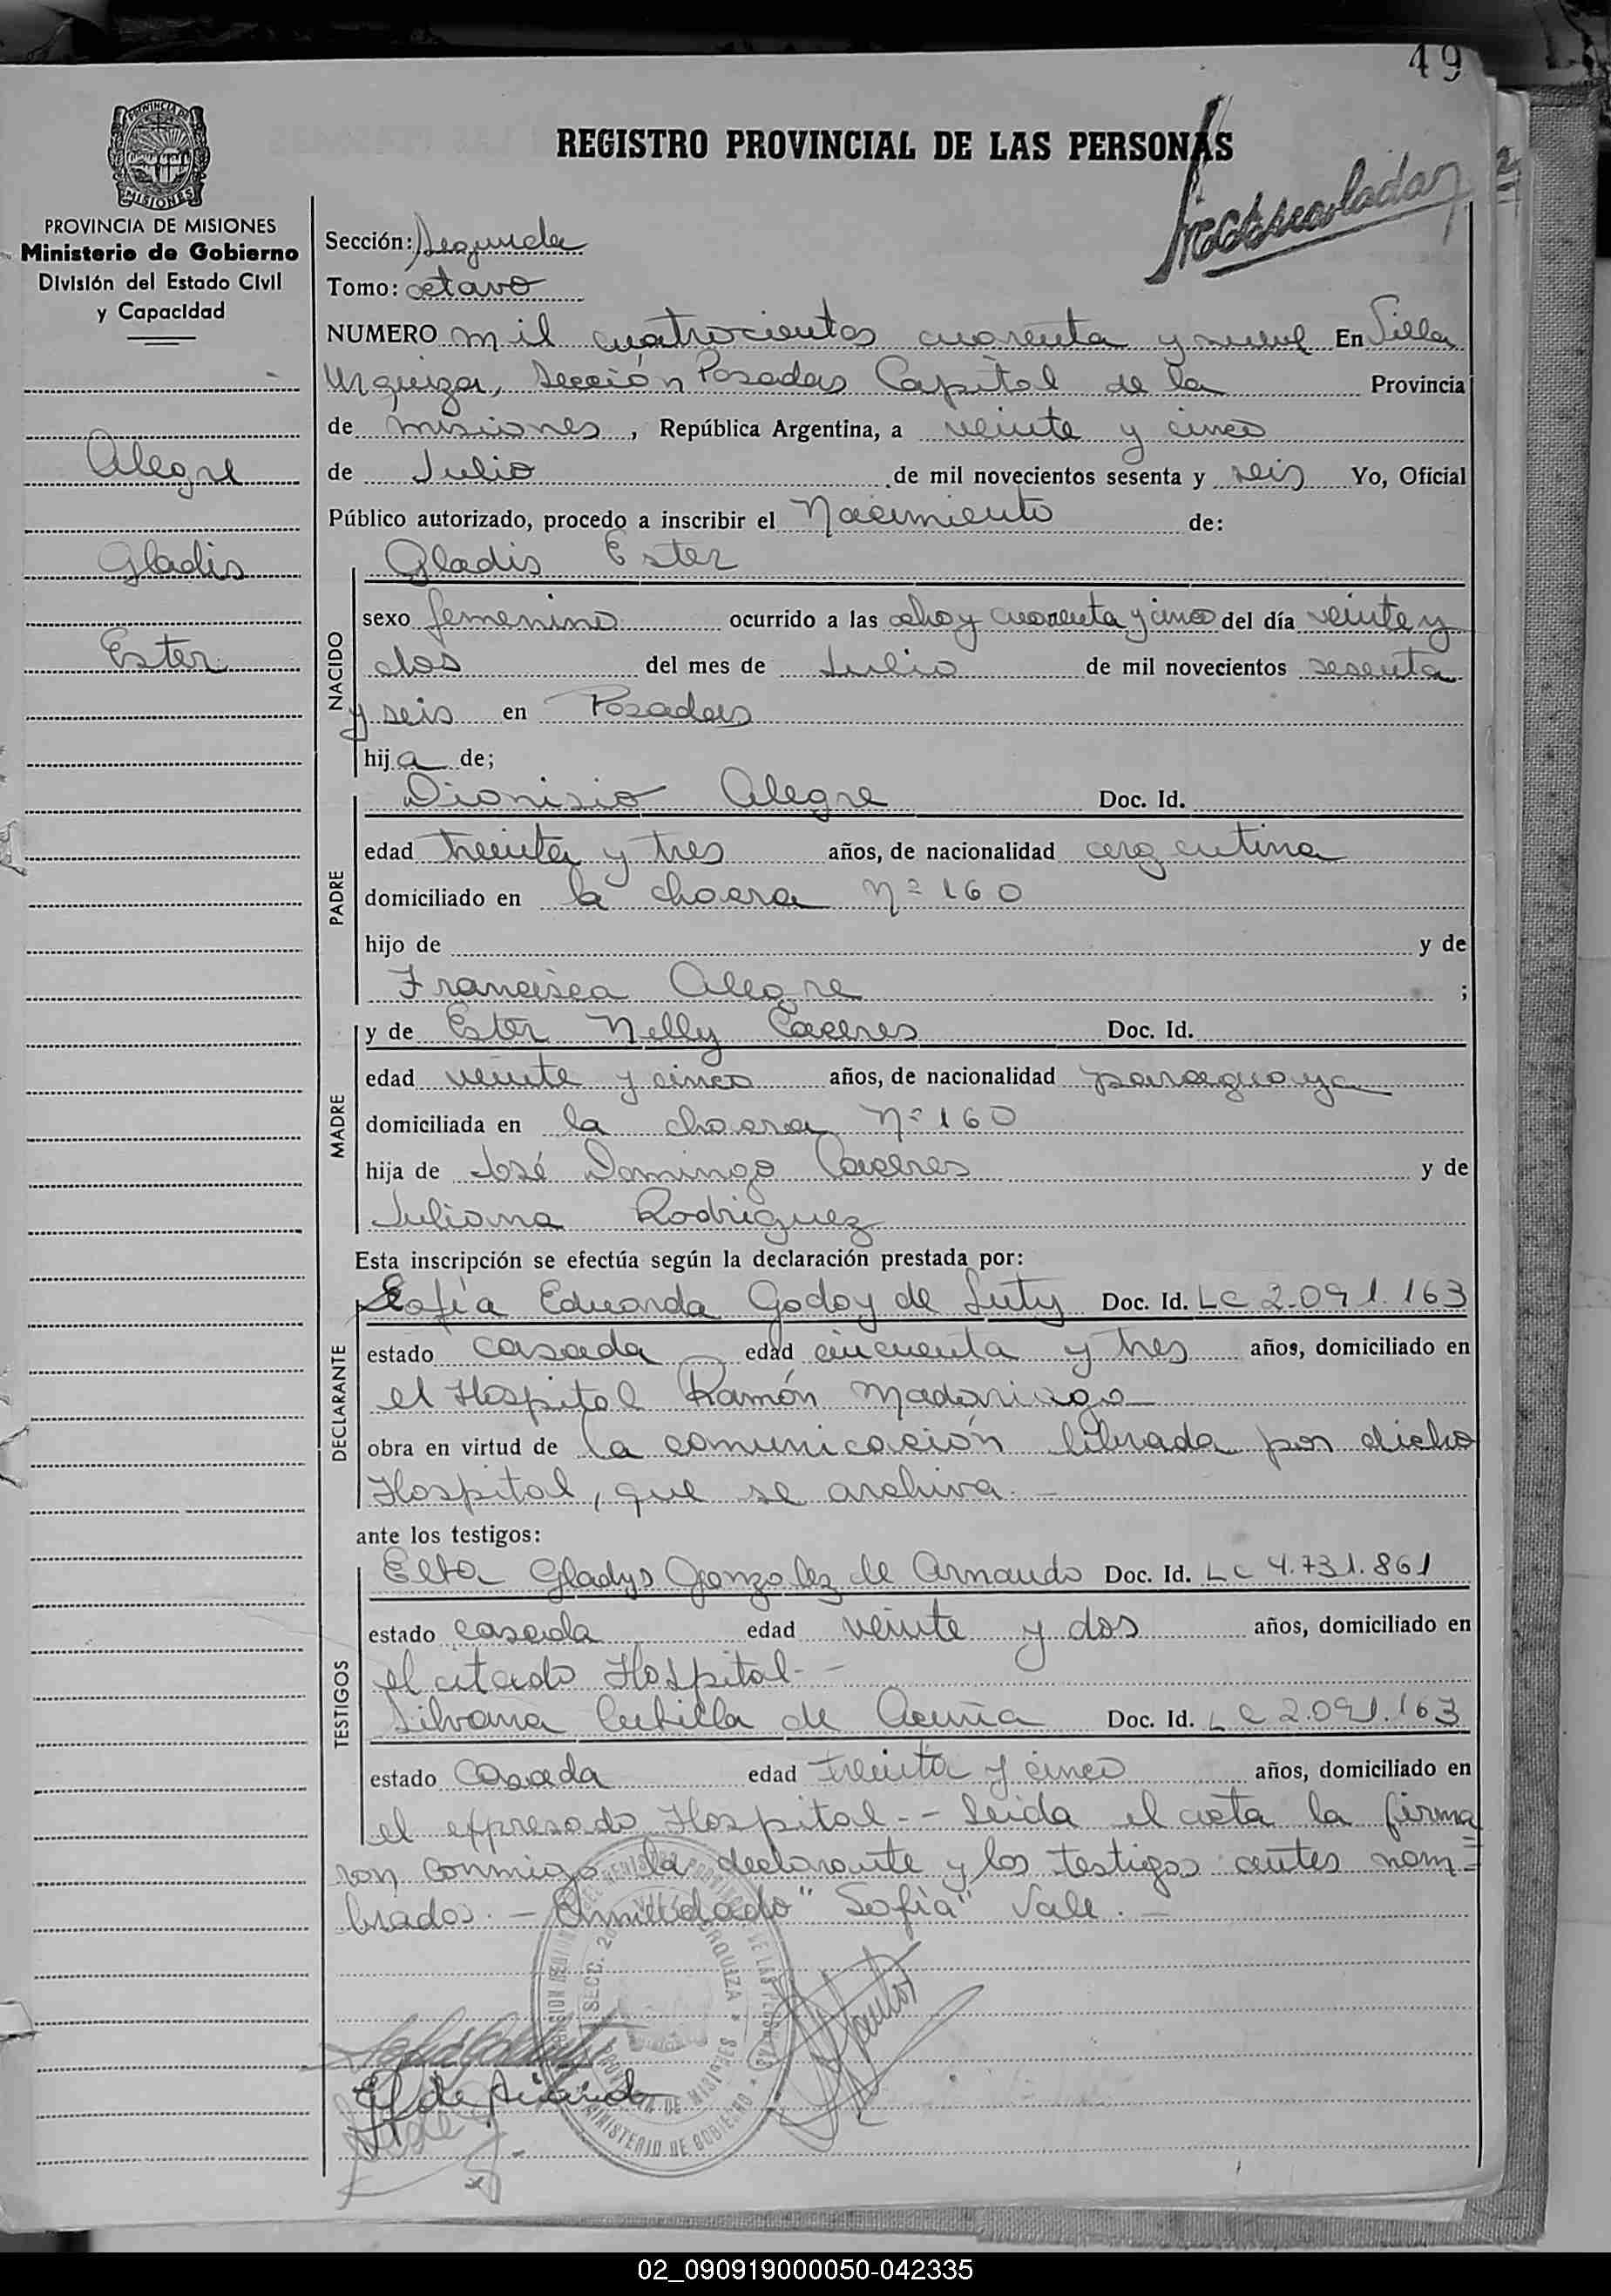 49
REGISTRO PROVINCIAL DE LAS PERSONAS
PROVINCIA DE MISIONES
Ministerio de Gobierno
División del Estado Civil
y Capacidad
Alegre
Gladis
Ester
Sección: Segunda
Tomo: octavo
NUMERO mil cuatrocientos cuarenta y nueve En Villa
Urquiza, Sección Posadas Capital de la Provincia
de misiones, República Argentina, a veinte y cinco
de Julio de mil novecientos sesenta y seis Yo, Oficial
Público autorizado, procedo a inscribir el Nacimiento de:
Gladis Ester
NACIDO
sexo femenino ocurrido a las ocho y cuarenta y cinco del día veinte y
dos del mes de Julio de mil novecientos sesenta
y seis en Posadas
hija de;
Dionisio Alegre Doc. Id.
PADRE
edad treinta y tres años, de nacionalidad argentina
domiciliado en la chacra Nº 160
hijo de y de
Francisca Alegre ;
y de Ester Nelly Caceres Doc. Id.
MADRE
edad veinte y cinco años, de nacionalidad paraguaya
domiciliada en la chacra Nº 160
hija de José Domingo Caceres y de
Juliana Rodriguez
Esta inscripción se efectúa según la declaración prestada por:
Sofía Eduarda Godoy de Luty Doc. Id. LC 2.091.163
DECLARANTE
estado casada edad cincuenta y tres años, domiciliado en
el Hospital Ramón Madariaga
obra en virtud de la comunicación librada por dicho
Hospital, que se archiva. —
ante los testigos:
Elba Gladys Gonzalez de Arnaudo Doc. Id. LC 4.731.861
TESTIGOS
estado casada edad veinte y dos años, domiciliado en
el citado Hospital - -
Silvana Cubilla de Acuña Doc. Id. LC 2.091.163
estado Casada edad treinta y cinco años, domiciliado en
el expresado Hospital - - Leida el acta la firma
ron conmigo la declarante y los testigos antes nom=
brados. — Enmendado "Sofía" Vale. —
SECC. 2a VILLA URQUIZA
PROVINCIA DE MISIONES
MINISTERIO DE GOBIERNO
02_090919000050-042335